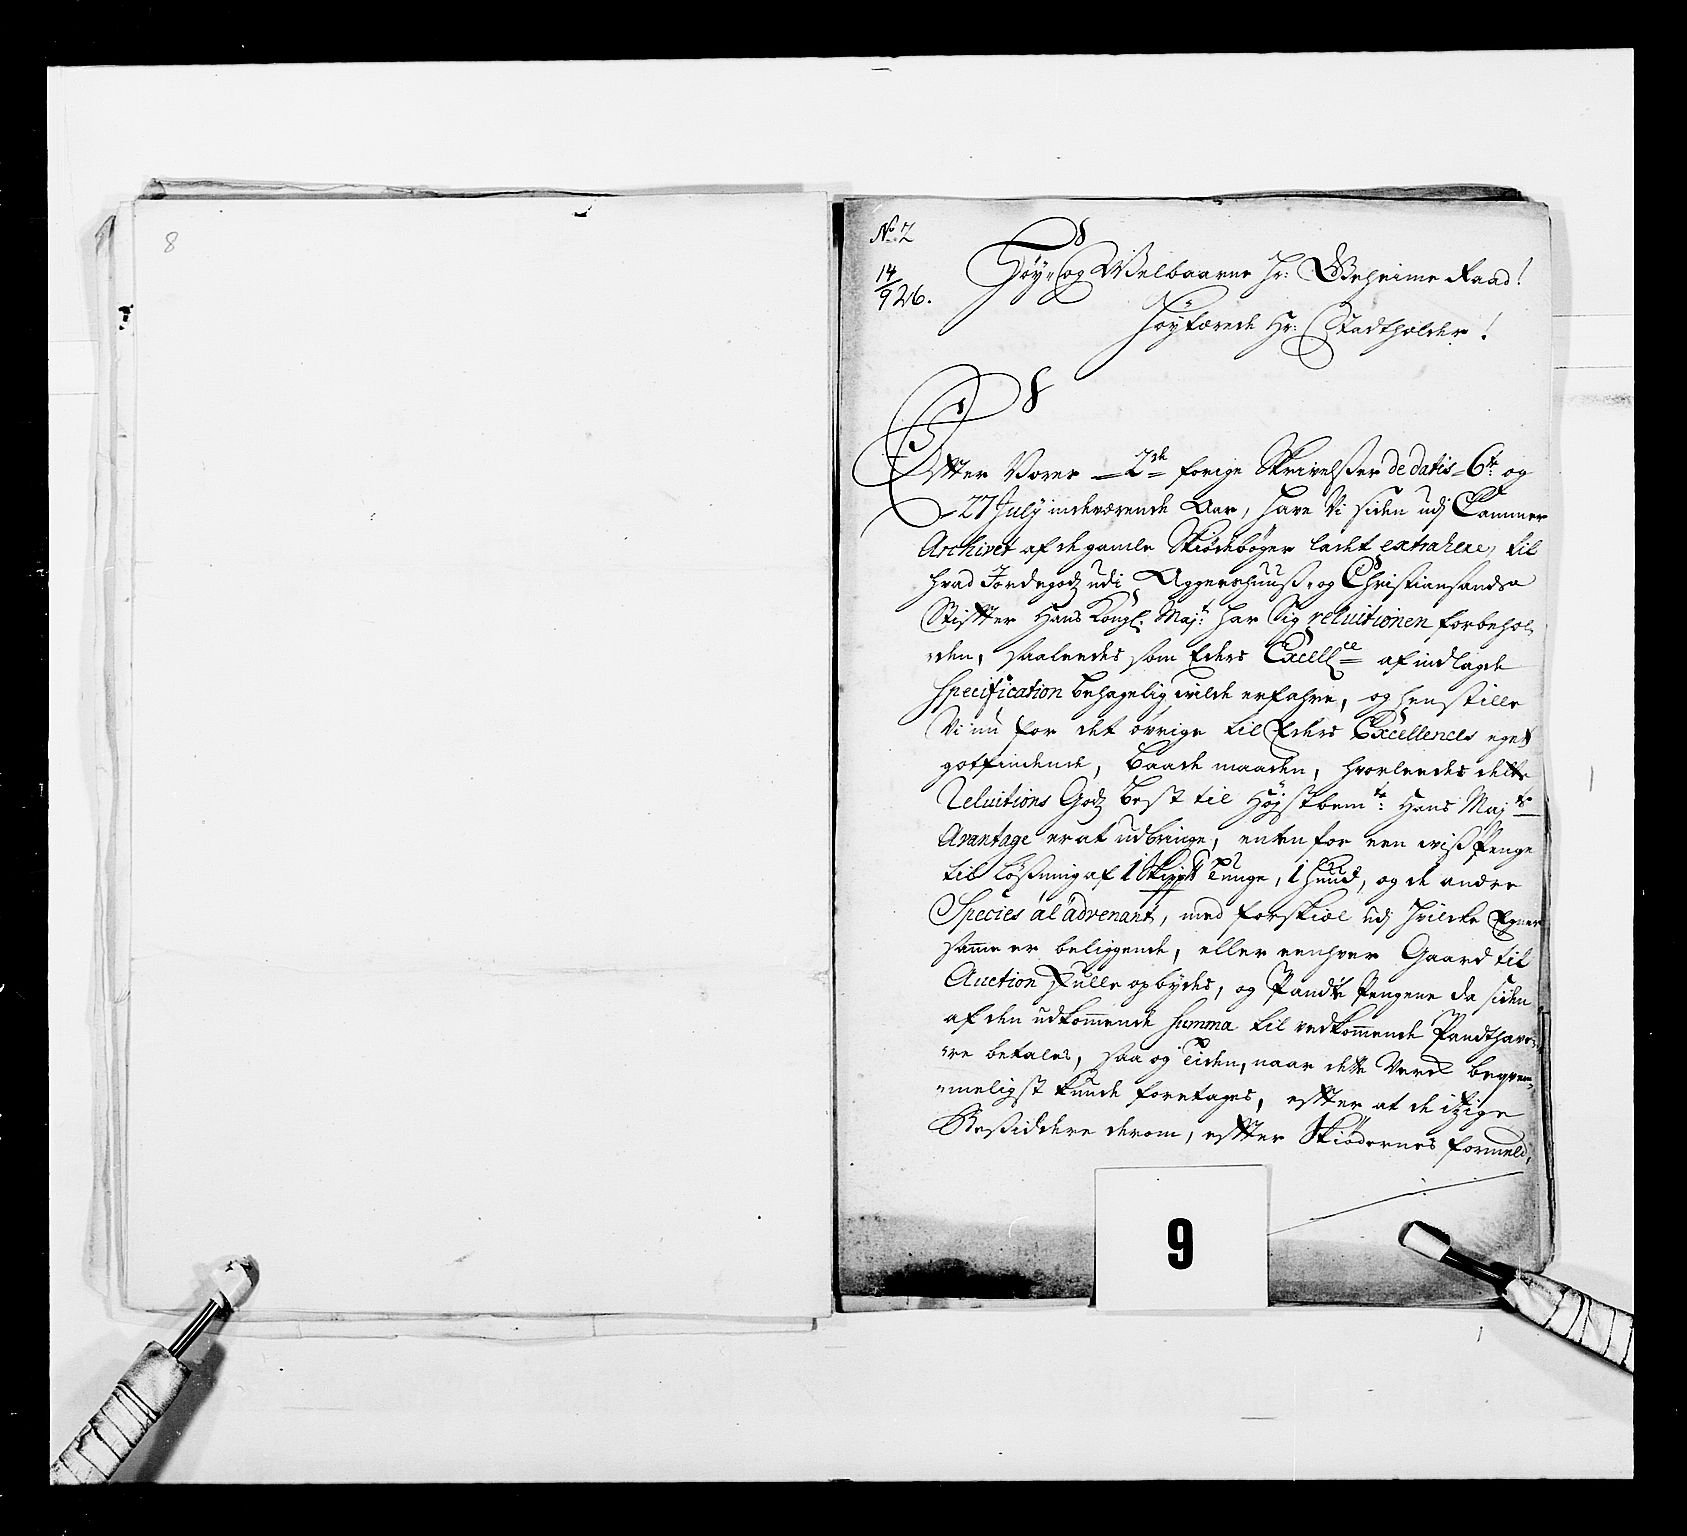 8
No 2
14/926.
Höy- og Welbaarne Hr: Geheime Raad!
Höyærede Hr: Stadtholder!
Efter Vores 2de forige Skrivelßer de datis 6te og
27 July indeværende Aar, have Vi siden udj Cammer
Archivet af de gamle Skiödebøger ladet extrahere, til
hvad Jordegodz udi Aggershuuß- og Christiansands
Stifter Hans Kongl. Majt har Sig reluitionen forbehol-
den, saaleedes som Eders Excellce af indlagde
Specification behagelig vilde erfahre, og henstille
Vi nu for det øvrige til Eders Excellences eget
gotfindende, baade maaden, hvorleedes dette
Reluitions Godz best til Höjstbemte Hans Majts
Avantage er at udbringe, enten for een viß Penge
til Lößning af 1 Skippd Tunge, 1 Huud, og de andre
Species al advenant, med forskiæl udj hvilcke Egner
samme er beliggende, eller eenhver Gaard til
Auction skulle opbydes, og Pandte Pengene da siden
af den udkommende Summa til vedkommende Pandthave-
re betales, saa og Tiden, naar dette Verck beqvem-
meligst kunde foretages, efter at de itzige
Beßiddere derom, efter Skiödernes formeld,
9